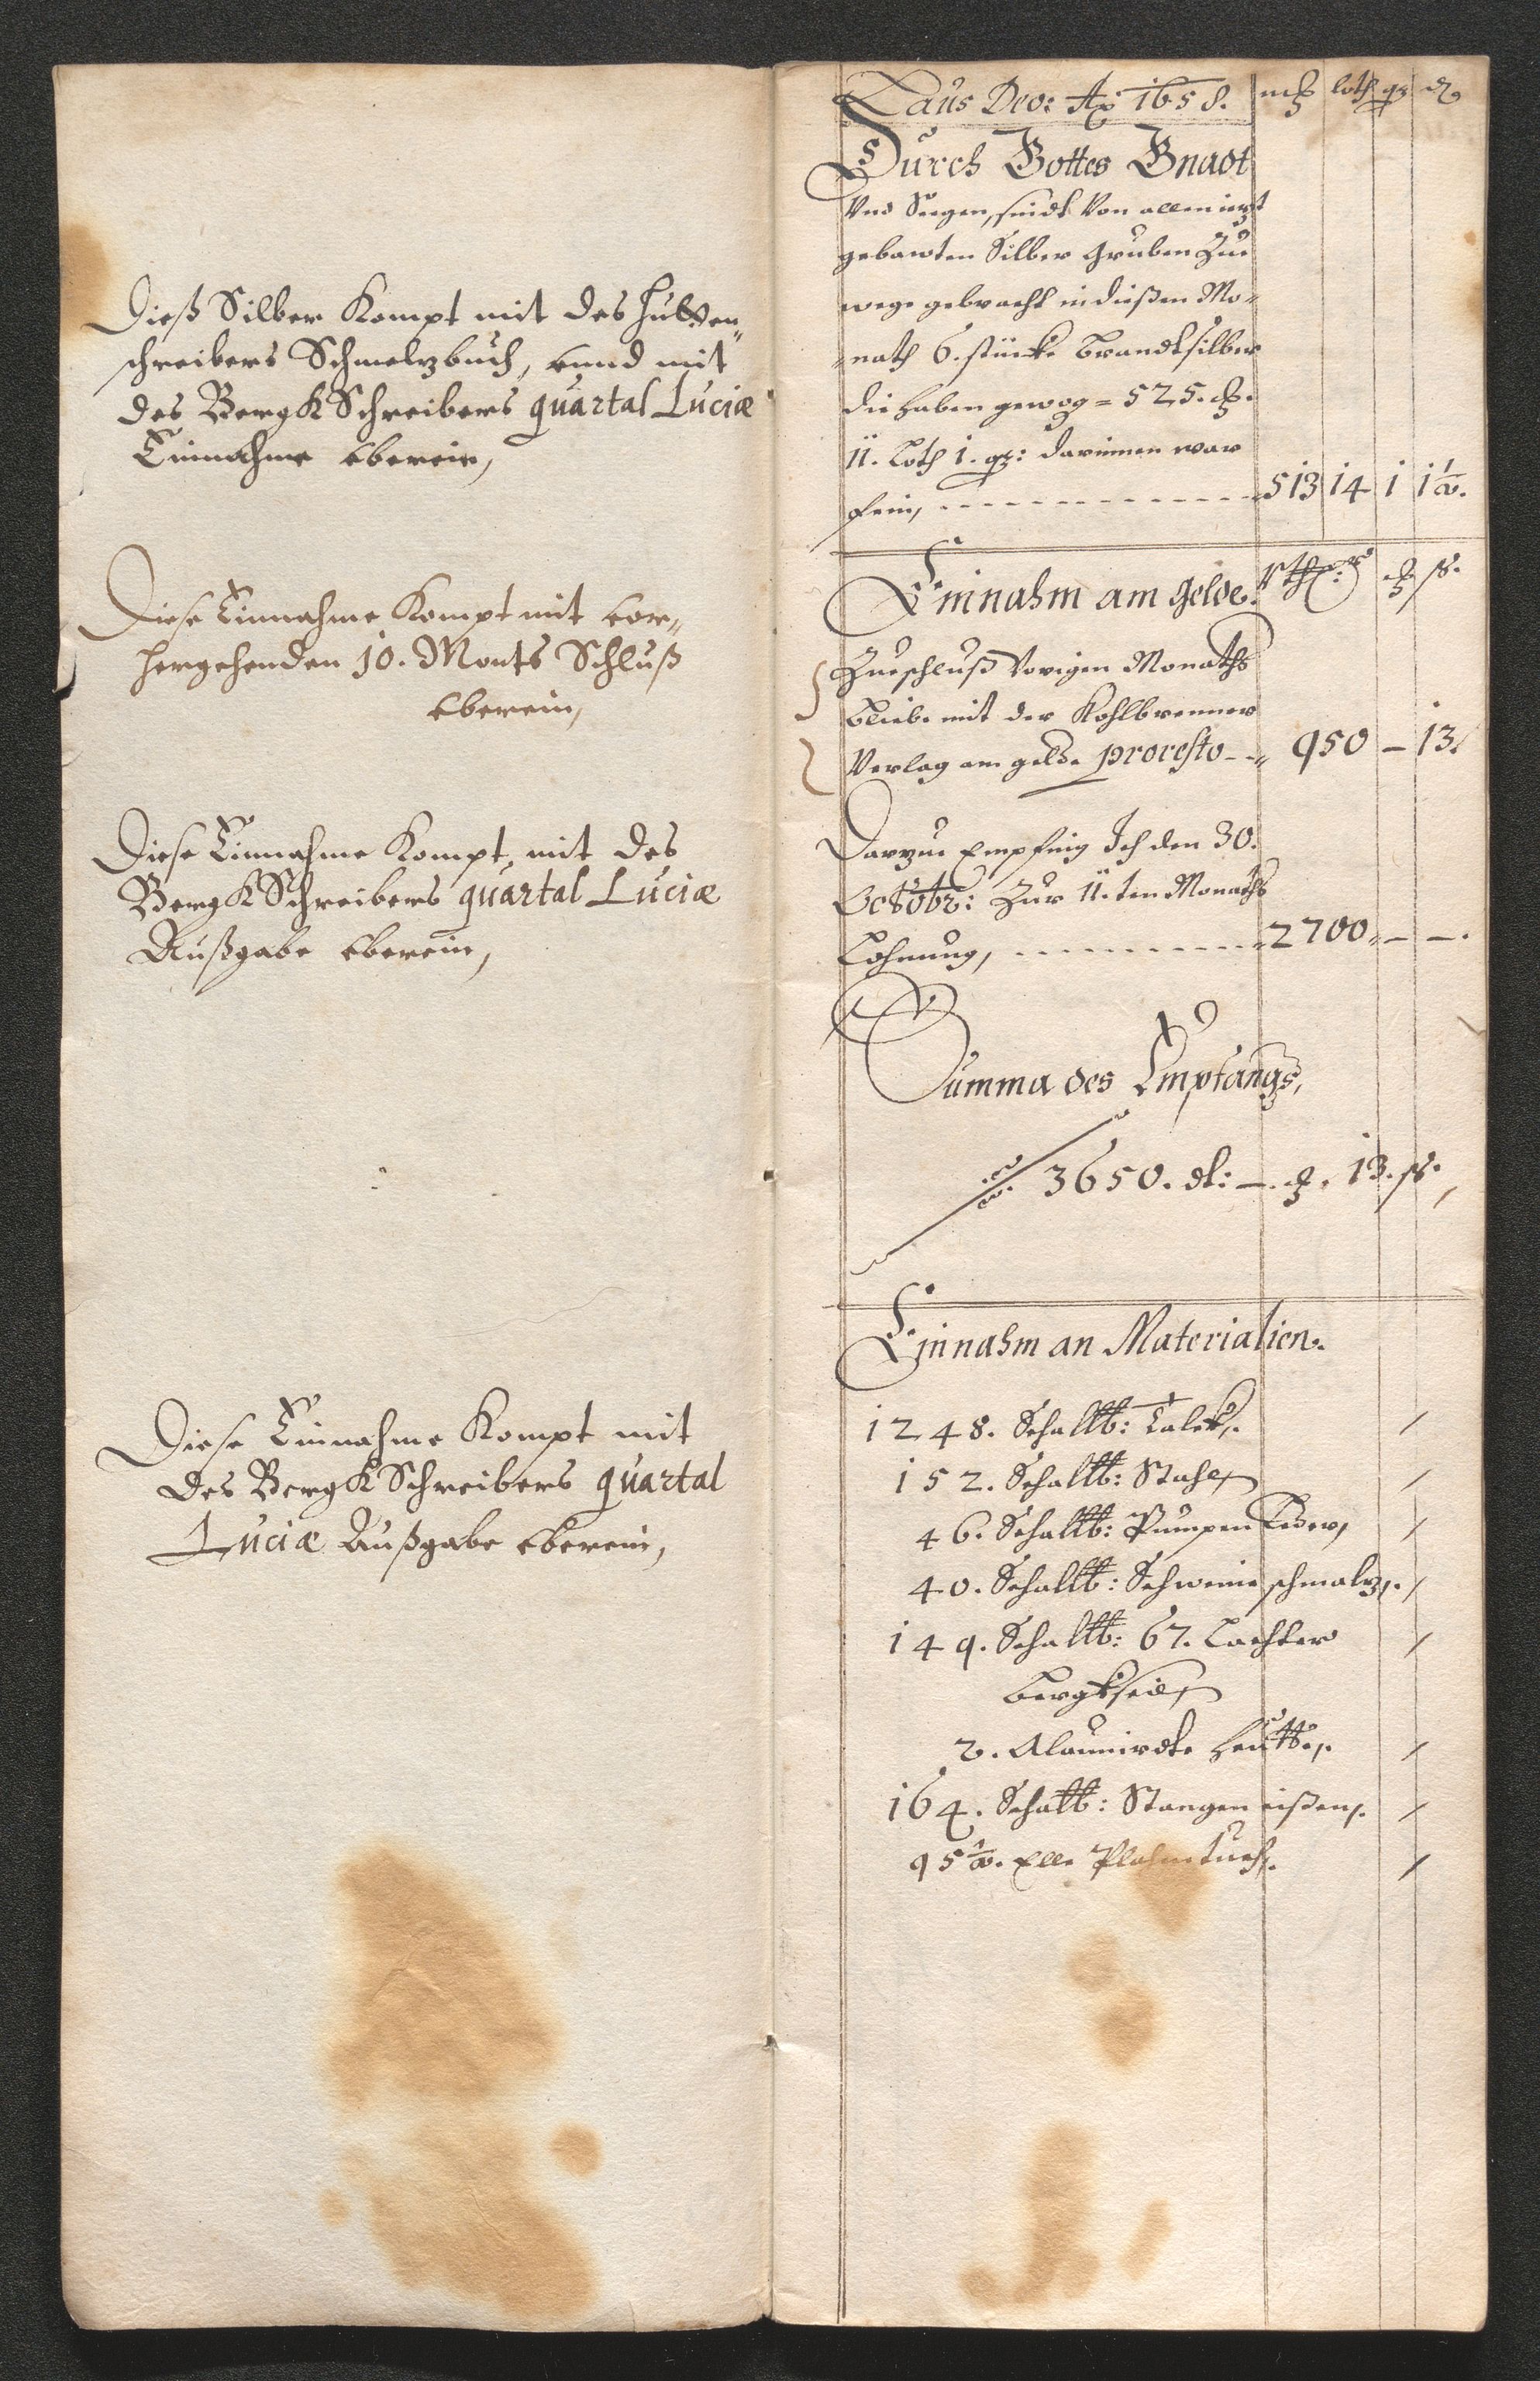 Dieß Silber Kompt mit des Hütten„
schreibers Schmelzbuch, unnd mit
des BergkSchreibers quartal Luciæ
Einnahme überein,
Diese Einnahme Kompt mit vor„
hergehenden 10. Monts Schluß
überein,
Diese Einnahme Kompt mit des
BergkSchreibers quartal Luciæ
Außgabe überein,
Diese Einnahme Kompt mit
des BergkSchreibers quartal
Luciæ Außgabe überein,
Laus Deo: Ao 1658. mg loth qz
Durch Gottes Gnadt
Vnd Seegen, seindt Von allen iezt
gebawten Silber Gruben Zue
wege gebracht in dießen Mo„
„nath 6. stücke Brandtsilber
die haben gewog= 525. mg.
11. Loth 1. qz: darinnen war
fein, 513 14 1 1 1/2.
Einnahm am Gelde. Rthlr: mg ß.
Zueschluß Vorigen Monaths
bliebe mit der Kohlbrenner
Verlag am gelde pro resto 950 — 13.
Darzue Empfing Ich den 30.
Octobr: Zur 11.ten Monaths
Lohnung, 2700 — —.
Summa des Empfangs,
3650. dl: —. mg. 13. ß.
Einnahm an Materialien.
1248. Schallb: Talck,
152. Schallb: Stahl,
46. Schallb: Pumpen Leder,
40. Schallb: Schweine schmalz,
149. Schallb: 67. Lachter
bergkseil,
2. Alaunirdte Heutte,
164. Schallb: Stangen eißen,
95 1/2. Elle Plahntuch,